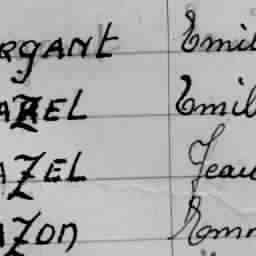 RGANt Emil
AZEL Emil
AZEL Jeau
AZON Emm